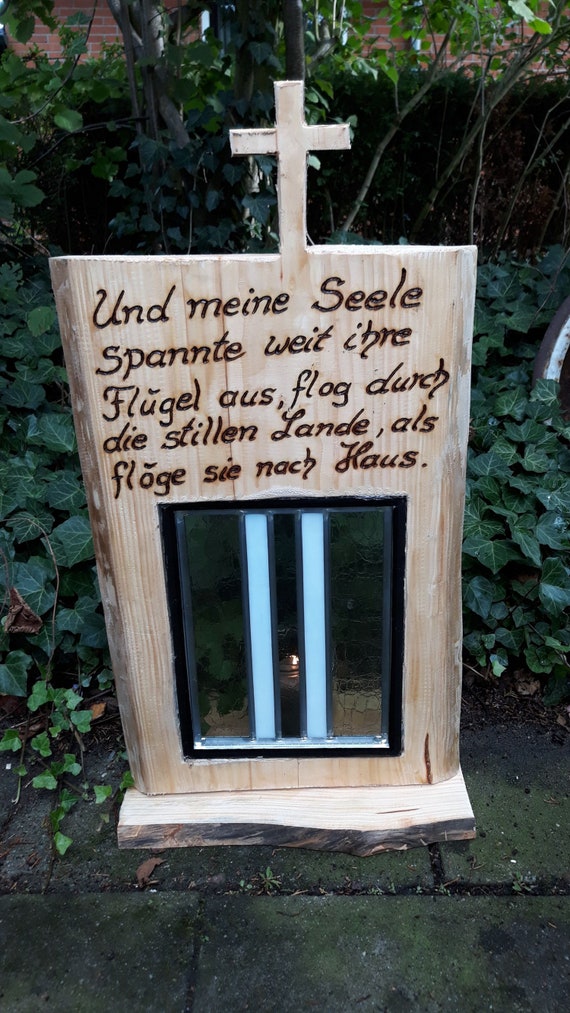 Und meine Seele
spannte weit ihre
Flügel aus, flog durch
die stillen Lande, als
flöge sie nach Haus.